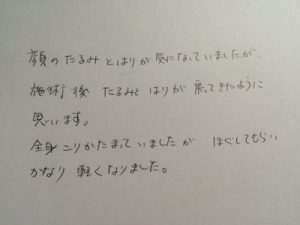 顔のたるみとはりが気になっていましたが、
施術後 たるみと はりが 戻ってきたように
思います。
全身こりかたまって いましたが ほぐしてもらい
かなり 軽くなりました。